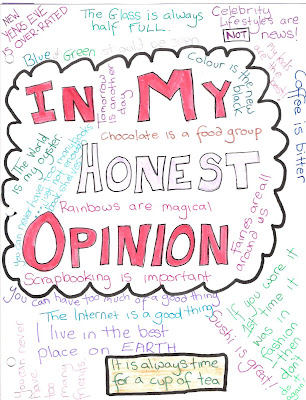 NEW
YEARS EVE
IS OVER RATED
The Glass is always
half FULL.
Celebrity
Lifestyles are
NOT news!
Blue & Green should
Colour is the new
black
Tomorrow
is another
day
IN MY
Chocolate is a food group
The World
is my oyster
HONEST
Coffee is bitter
Rainbows are magical
Fairies are all
around us
OPINION
Scrapbooking is important
You can have too much of a good thing
The Internet is a good thing
I live in the best
place on EARTH
If you wore it
last time it
was in
fashion
then
don't
do it
again
Sushi is great!
You can never
have
too
many
friends
It is always time
for a cup of tea